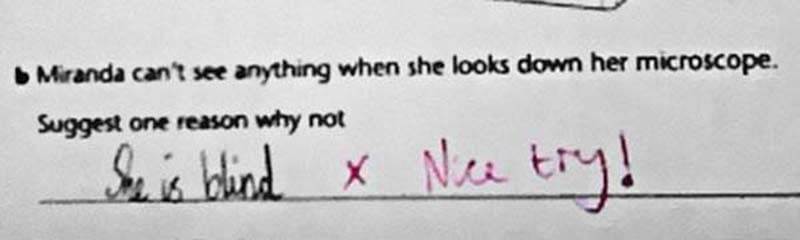 b Miranda can't see anything when she looks down her microscope.
Suggest one reason why not
She is blind x Nice try!